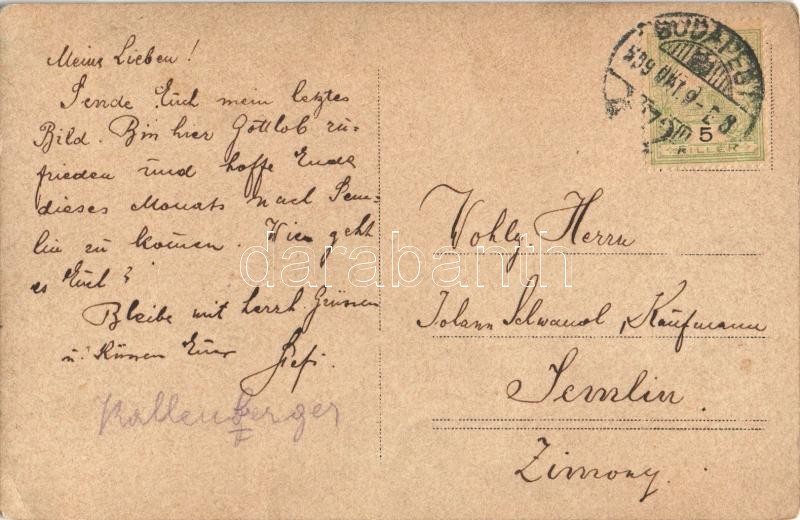 Meine Lieben!
Sende Euch mein letztes
Bild. Bin hier Gottlob zu-
frieden und hoffe Ende
dieses Monats nach Sem-
lin zu komen. Wie geht
es Euch?
Bleibe mit herzl. Grüssen
u. Küssen Euer
Kallenberger
BUDAPEST
5
FILLÉR
Wohlg. Herrn
Johann Schwandl, Kaufmann
Semlin.
Zimony.
darabanth